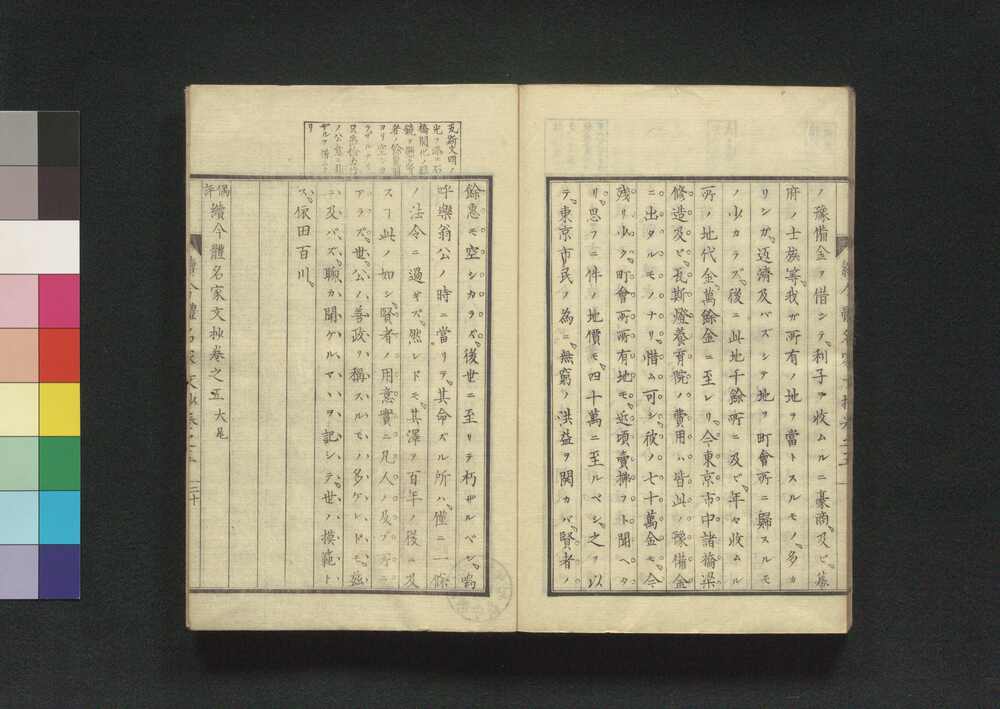 ノ豫備金ヲ借シテ利子ヲ收ムルニ豪商及ビ幕
府ノ士族等我ガ所有ノ地ヲ當トスルモノ多カ
リシガ返濟及バズシテ地ヲ町會所ニ歸スルモ
ノ少カラズ後ニ此地千餘所ニ及ビ年々收ムル
所ノ地代金萬餘金ニ至レリ今東京市中諸橋梁
修造及ビ瓦斯燈養育院ノ費用ハ皆此ノ豫備金
ニ出タルモノナリ惜ム可シ彼ノ七十萬金モ今
殘リ少ク町會所所有地モ近頃賣拂フト聞ヘタ
リ思フニ件ノ地價モ四十萬ニ至ルベシ之ヲ以
テ東京市民ノ為ニ無窮ノ洪益ヲ開カバ賢者ノ
瓦斯文明ノ
光ヲ添エ石
橋開化ノ
餘惠モ空シカラズ後世ニ至リテ朽ザルベシ嗚
呼樂翁公ノ時ニ當リテ其命ズル所ハ僅ニ一條
ノ法令ニ過ギズ然レドモ其澤ヲ百年ノ後ニ及
ス丁此ノ如シ賢者ノ用意實ニ凡人ノ及ブ所ニ
アラズ世公ノ善政ヲ稱スルモノ多ケレドモ茲
ニ及バズ聊カ聞ケルマヽヲ記シテ世ノ模範ト
ス依田百川
偶評 續今體名家文抄卷之五大尾
續今體名家文抄卷之五 三十